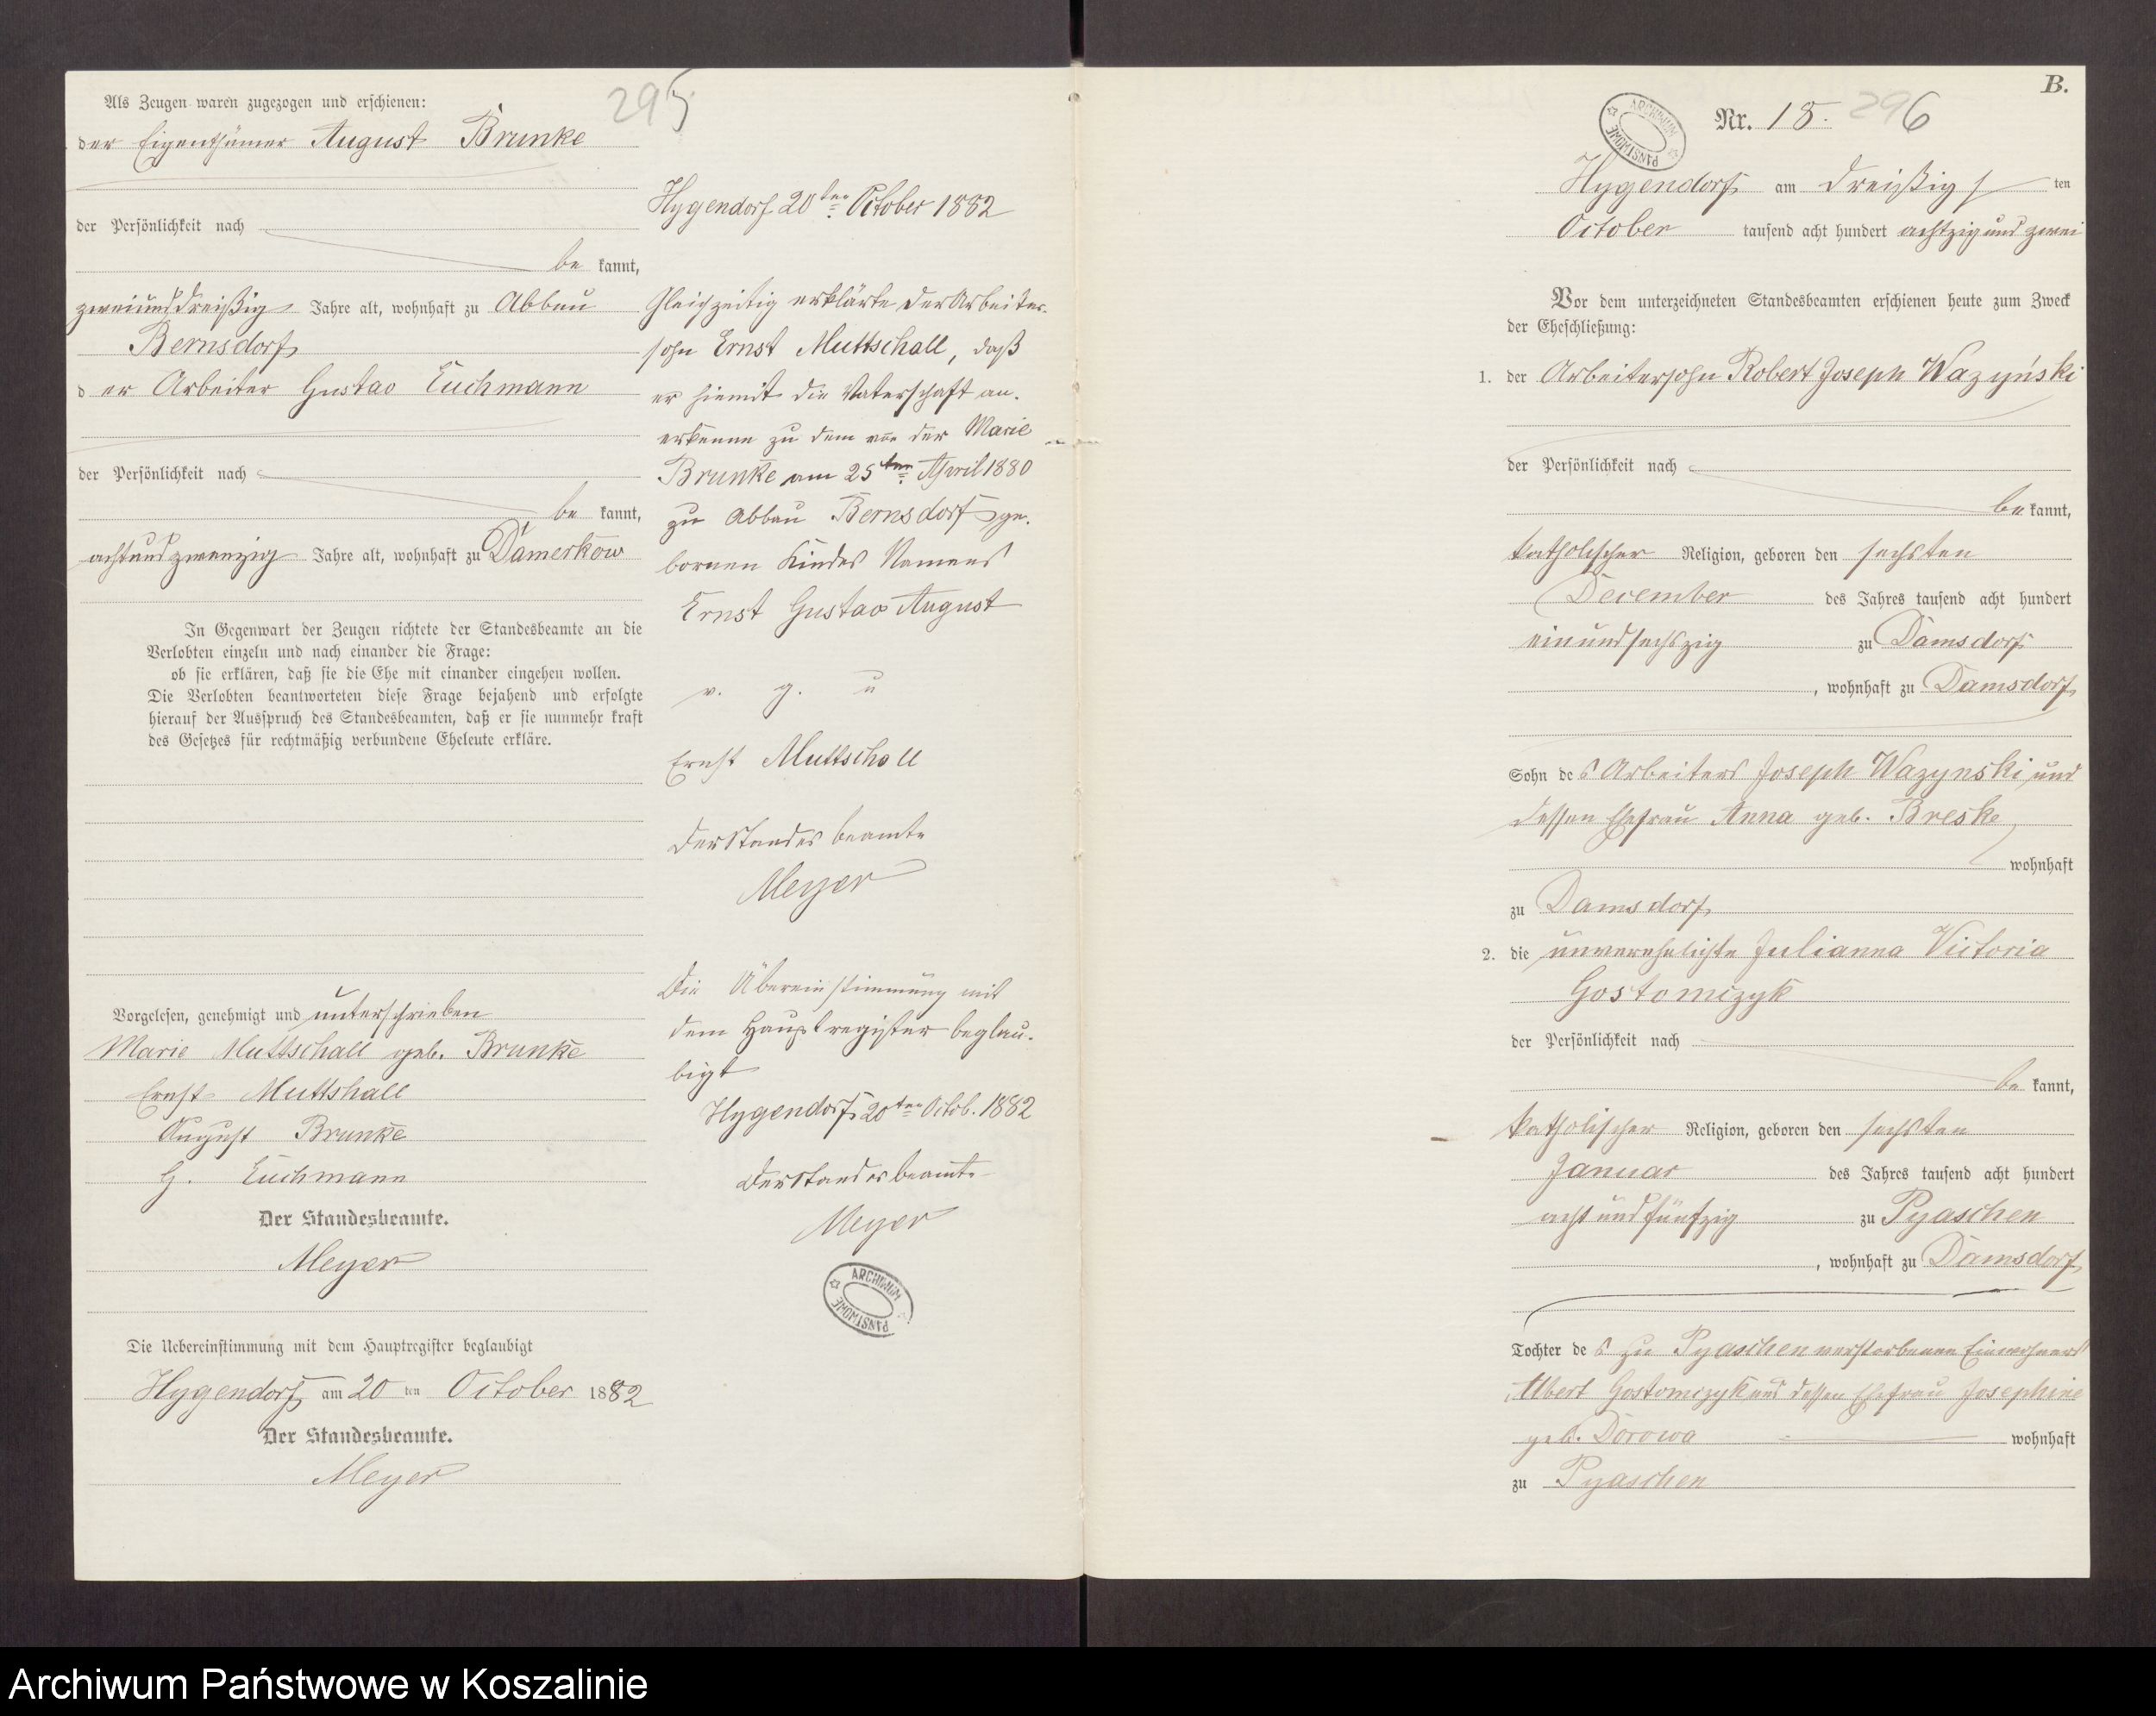 Als Zeugen waren zugezogen und erschienen:
295
der Eigenthümer August Brunke
der Persönlichkeit nach
be kannt,
zweiunddreißig Jahre alt, wohnhaft zu Abbau
Bernsdorf
d er Arbeiter Gustav Euchmann
der Persönlichkeit nach
be kannt,
achtundzwanzig Jahre alt, wohnhaft zu Damerkow
In Gegenwart der Zeugen richtete der Standesbeamte an die
Verlobten einzeln und nach einander die Frage:
ob sie erklären, daß sie die Ehe mit einander eingehen wollen.
Die Verlobten beantworteten diese Frage bejahend und erfolgte
hierauf der Ausspruch des Standesbeamten, daß er sie nunmehr kraft
des Gesetzes für rechtmäßig verbundene Eheleute erkläre.
Vorgelesen, genehmigt und unterschrieben
Marie Muttschall geb. Brunke
Ernst Muttshall
August Brunke
G. Euchmann
Der Standesbeamte.
Meyer
Die Uebereinstimmung mit dem Hauptregister beglaubigt
Hygendorf am 20 ten October 1882
Der Standesbeamte.
Meyer
Hygendorf 20ten October 1882
Gleichzeitig erklärte der Arbeiter-
sohn Ernst Muttschall, daß
er hiemit die Vaterschaft an-
erkenne zu dem von der Marie
Brunke am 25ten April 1880
zu Abbau Bernsdorf ge-
bornen Kindes Namens
Ernst Gustav August
v. g. u
Ernst Muttschall
Der Standesbeamte
Meyer
Die Übereinstimmung mit
dem Hauptregister beglau-
bigt
Hygendorf 20ten Octob. 1882
Der Standesbeamte
Meyer
ARCHIWUM PAŃSTWOWE
B.
ARCHIWUM PAŃSTWOWE
Nr. 18. 296
Hygendorf am dreißigs ten
October tausend acht hundert achtzig und zwei
Vor dem unterzeichneten Standesbeamten erschienen heute zum Zweck
der Eheschließung:
1. der Arbeitersohn Robert Joseph Wazyński
der Persönlichkeit nach
be kannt,
katholischer Religion, geboren den sechsten
December des Jahres tausend acht hundert
einundsechszig zu Damsdorf
, wohnhaft zu Damsdorf
Sohn de s Arbeiters Joseph Wazynski und
dessen Ehefrau Anna geb. Breske
wohnhaft
zu Damsdorf
2. die unverehelichte Julianna Victoria
Gostomczyk
der Persönlichkeit nach
be kannt,
katholischer Religion, geboren den sechsten
Januar des Jahres tausend acht hundert
acht und fünfzig zu Pyaschen
, wohnhaft zu Damsdorf
Tochter de s zu Pyaschen verstorbenen Einwohners
Albert Gostomczyk und dessen Ehefrau Josephine
geb. Dorowa wohnhaft
zu Pyaschen
Archiwum Państwowe w Koszalinie